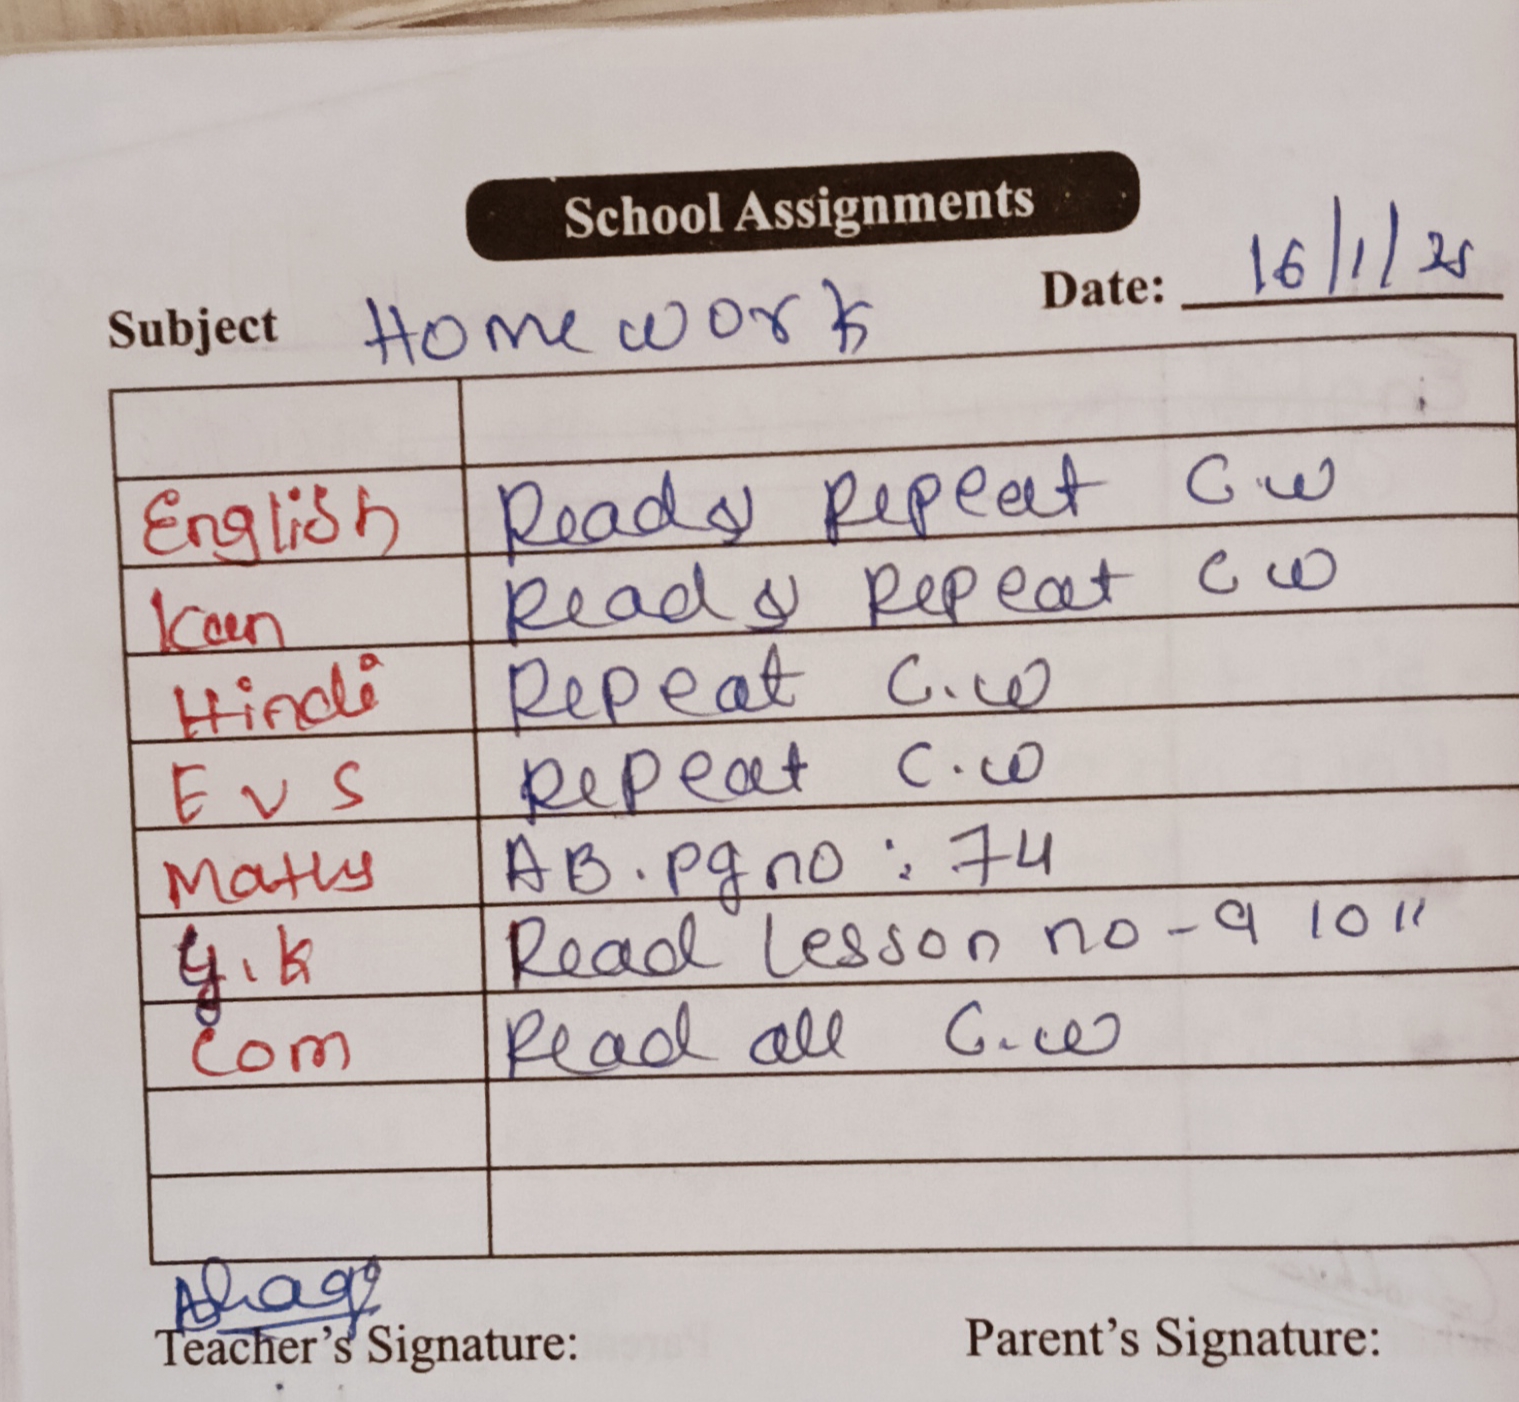 School Assignments
Subject Homework Date: 16/1/25
English Read & Repeat C.w
Kan Read & Repeat C w
Hindi Repeat C.w
E v S Repeat C.w
Maths AB. pg no : 74
G.K Read Lesson no - 9 10 11
Com Read all C.w
Teacher's Signature: Parent's Signature: